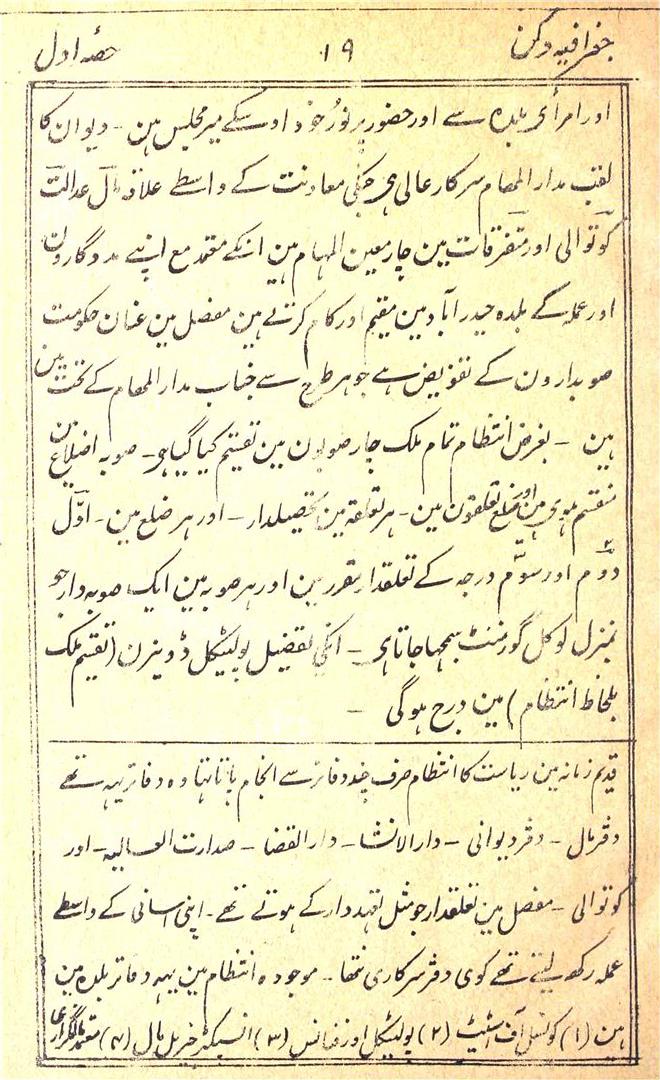 جغرافیہ دکن ۱۹ حصّہ اول
اور امرائے بلدہ سے اور حضور پرنور خود اوسکے میر مجلس ہین - دیوان کا
لقب مدار المہام سرکار عالی ہی جنکی معاونت کے واسطے علاقہ مال عدالت
کوتوالی اور متفرقات مین چار معین المہام ہین انکے معتمد مع اپنے مددگارون
اور عملہ کے بلدہ حیدرآباد مین مقیم اور کام کرتے ہین مفصل مین عنان حکومت
صوبدارون کے تفویض ہے جو ہر طرح سے جناب مدار المہام کے تحت مین
ہین - بغرض انتظام تمام ملک چار صوبون مین تقسیم کیا گیا ہو - صوبہ اضلاع مین
منقسم ہوی ہین اور ضلع تعلقون مین - ہر تعلقہ مین تحصیلدار - اور ہر ضلع مین - اوّل
دوّم اور سوّم درجہ کے تعلقدار مقرر ہین اور ہر صوبہ مین ایک صوبہ دار جو
بمنزل لوکل گورمنٹ سمجھا جاتا ہی - انکی تفضیل پولیٹکل ڈویزن (تقسیم ملک
بلحاظ انتظام) مین درج ہوگی -
قدیم زمانہ مین ریاست کا انتظام صرف چند دفاتر سے انجام پاتا تہا وہ دفاتر یہہ تھے
دفتر مال - دفتر دیوانی - دار الانشا - دار القضا - صدارت العالیہ - اور
کوتوالی - مفصل مین تعلقدار جو مثل تعہد دار کے ہوتے تھے - اپنی اسانی کے واسطے
عملہ رکھہ لیتے تھے کوی دفتر سرکاری نتھا - موجودہ انتظام مین یہہ دفاتر بلدہ مین
ہین (۱) کونسل آف اسٹیٹ (۲) پولیٹکل اوز فنانس (۳) انسپکٹر جنرل مال (۴) معتمد مالگزاری